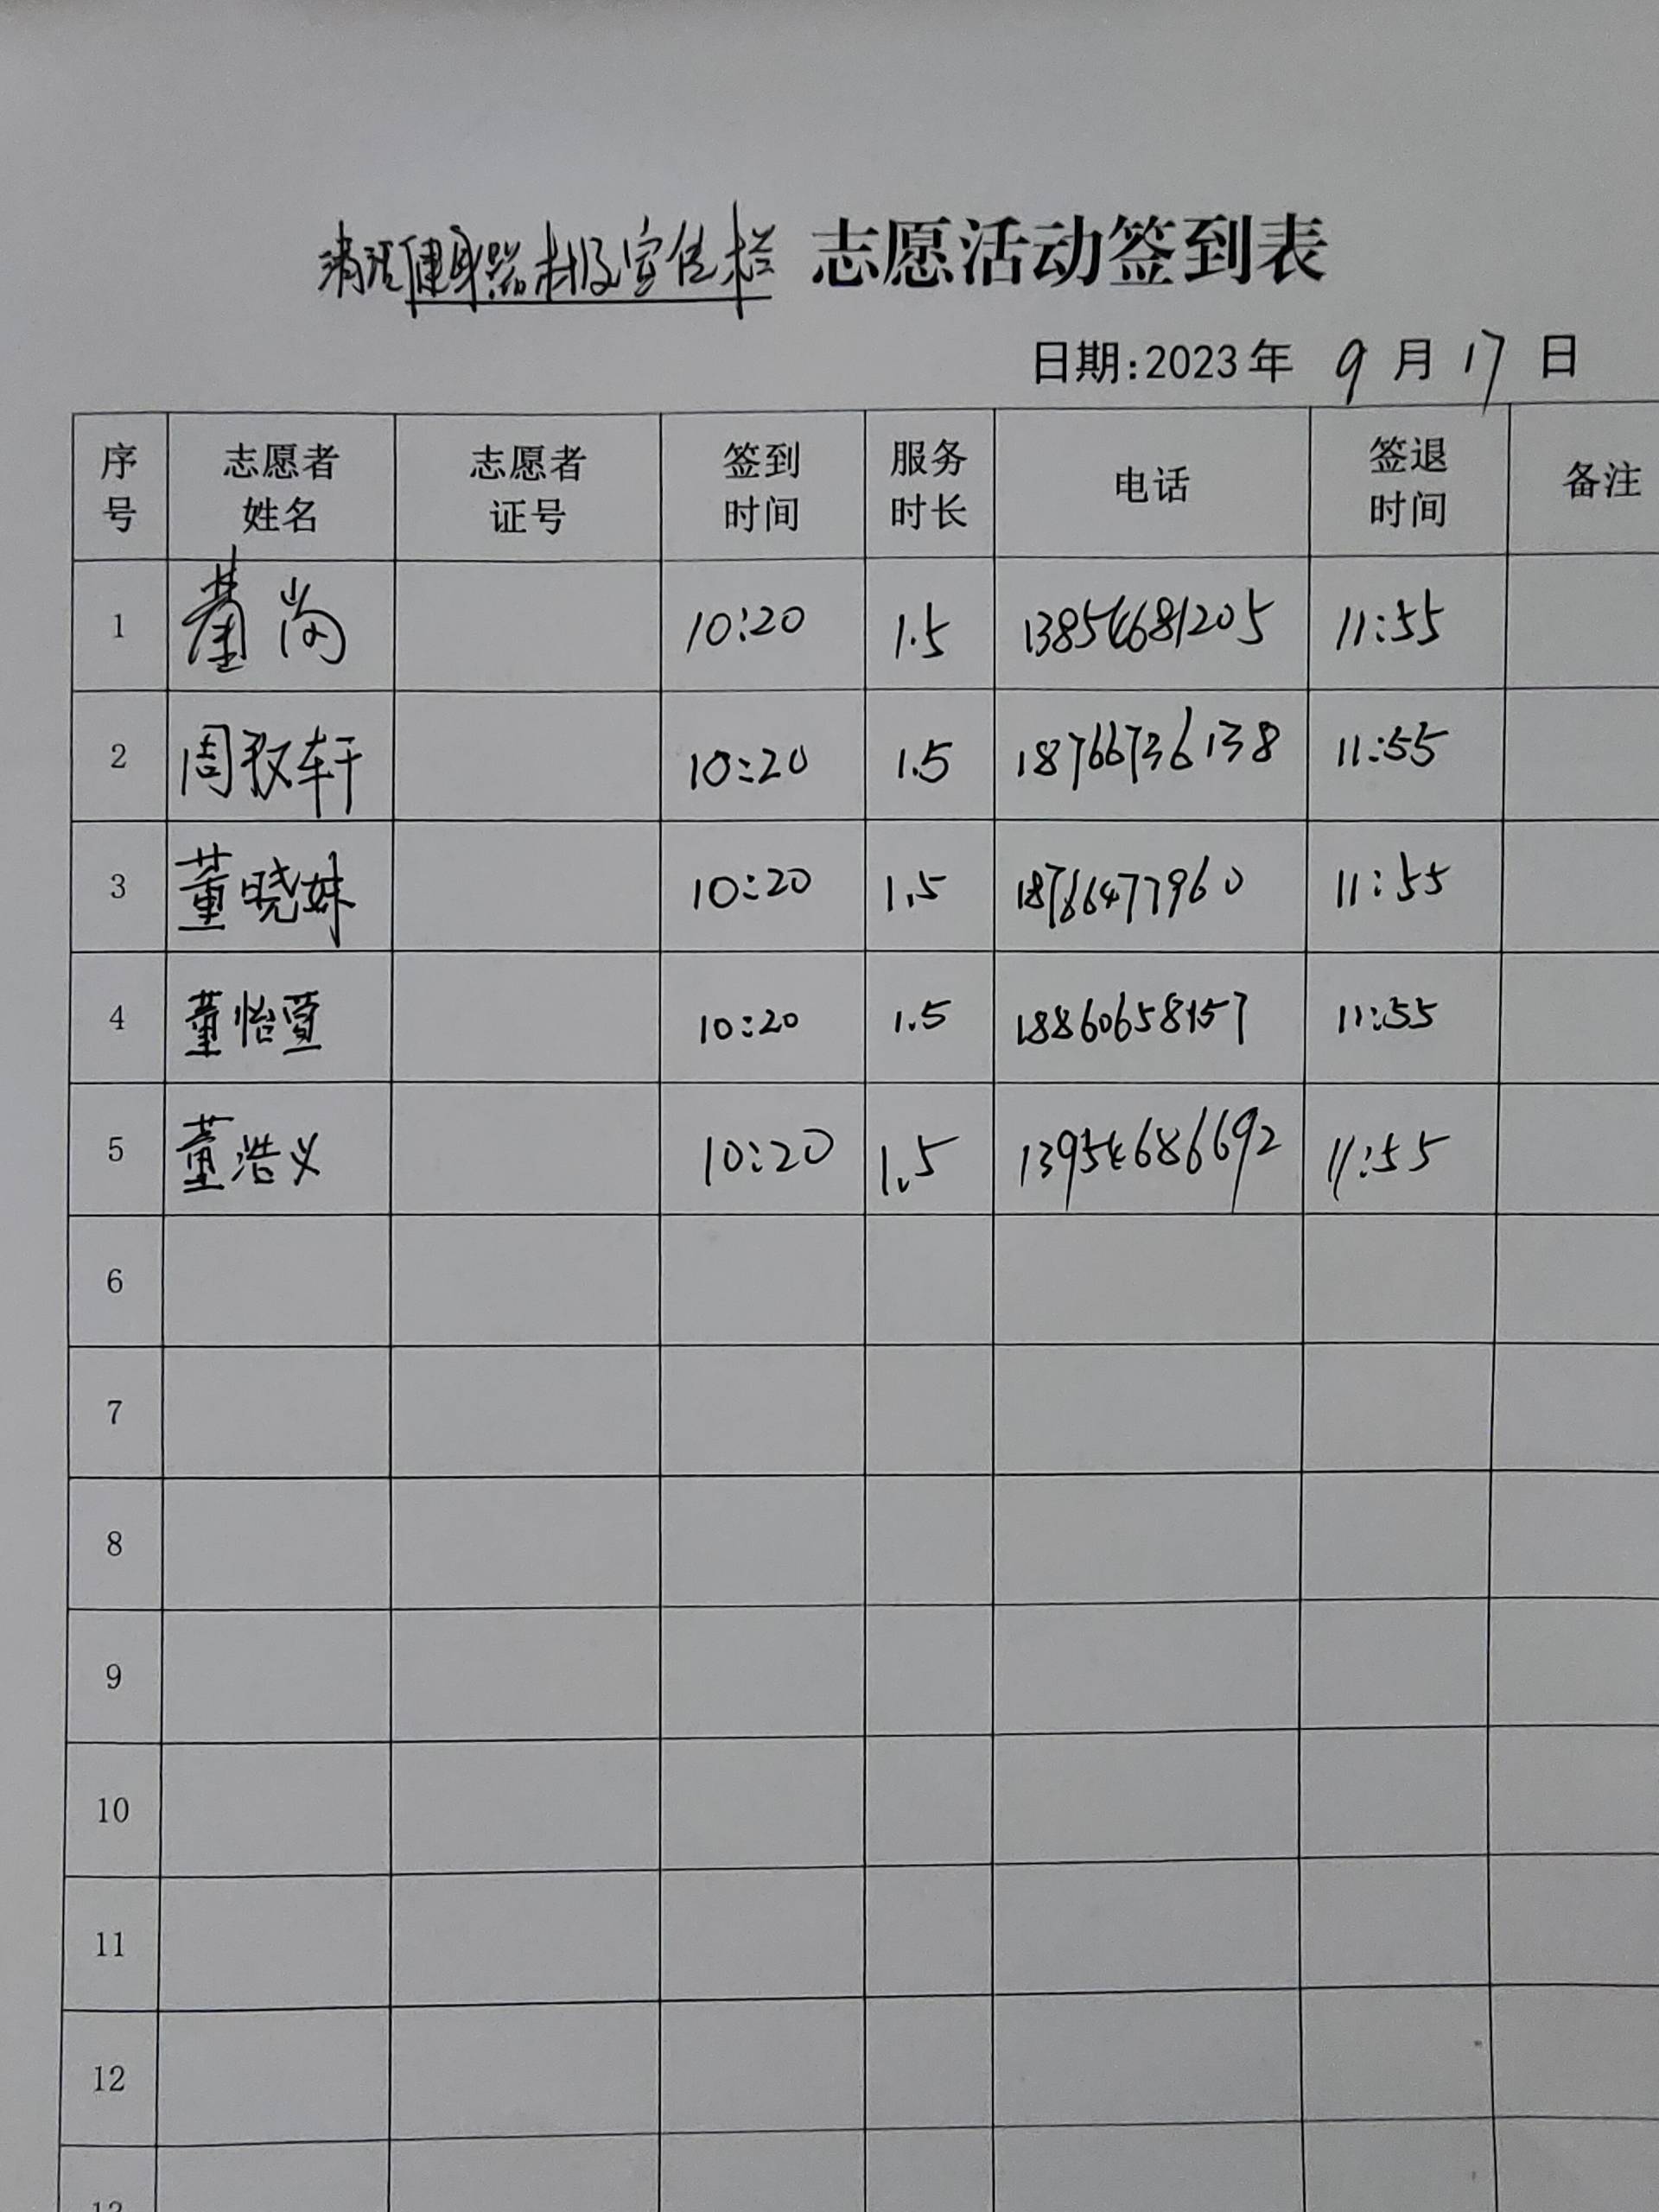 清洁健身器材及宣传栏 志愿活动签到表
日期:2023年 9月17日
序号 志愿者姓名 志愿者证号 签到时间 服务时长 电话 签退时间 备注
1 董尚 10:20 1.5 13854681205 11:55
2 周 轩 10:20 1.5 18766736138 11:55
3 董晓妹 10:20 1.5 18766477960 11:55
4 董怡萱 10:20 1.5 18860658157 11:55
5 董浩义 10:20 1.5 13954686692 11:55
6
7
8
9
10
11
12